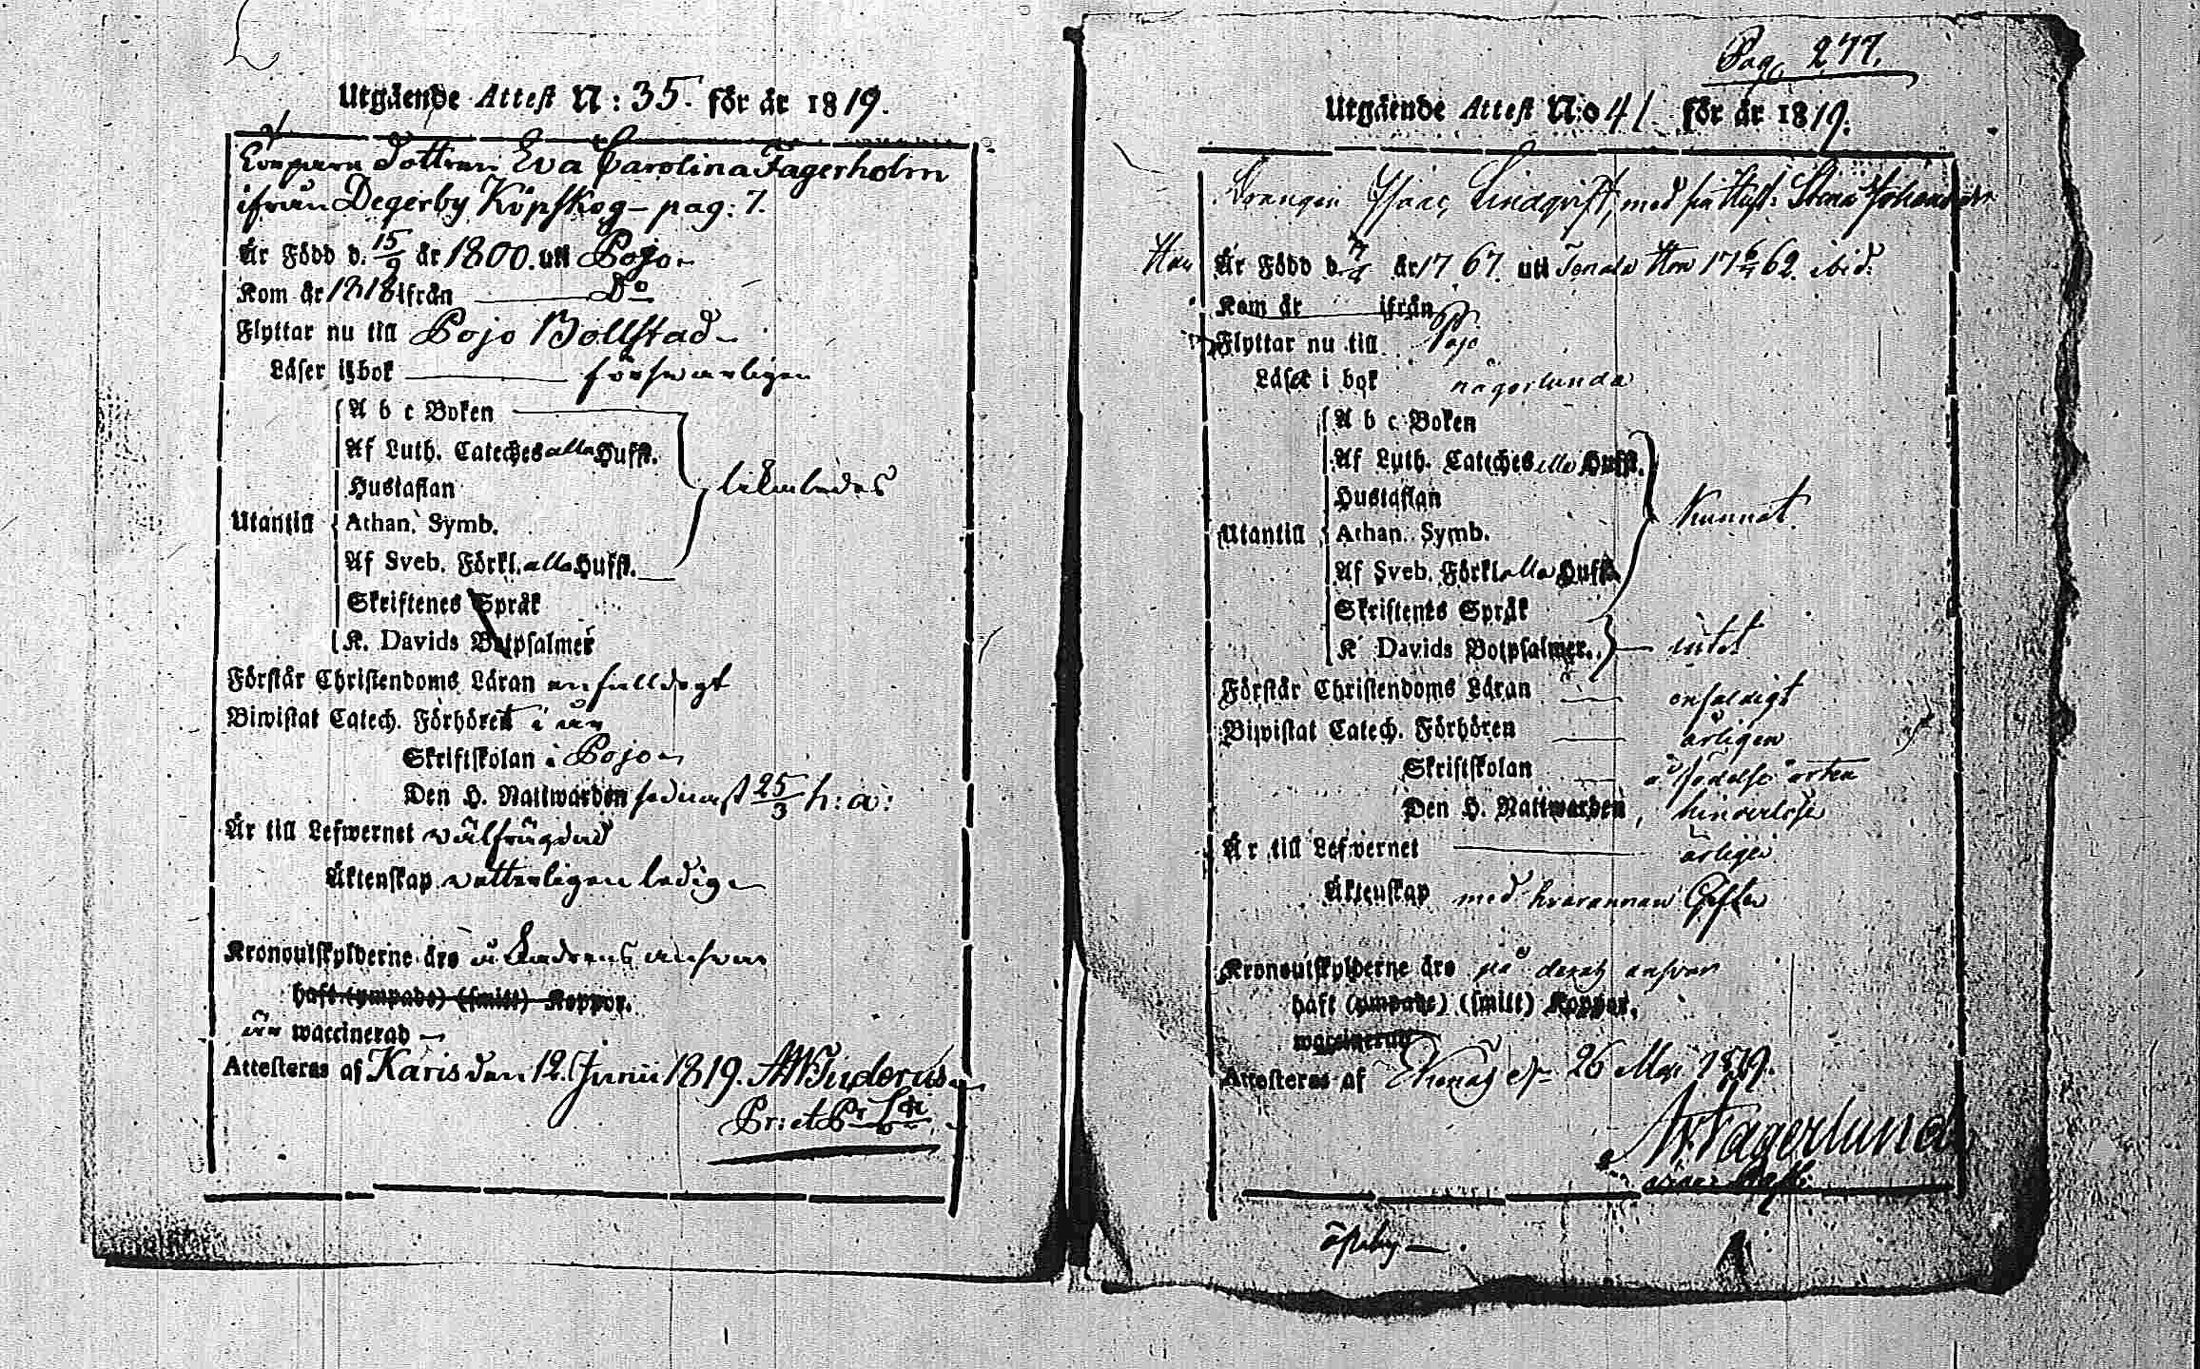 Utgående Attest N: 35. för år 1819.
Dottren Eva Carolina Fagerholm
ifrån Degerby Köpskog – pag: 7.
Är Född d. 15/9 år 1800. uti Pojo
Kom år 1818 ifrån D:o
Flyttar nu till Pojo Bollstad
Läser i bok förswarligen
A b c Boken
Af Luth. Cateches alla Hufst.
Hustaflan
likaledes
Utantill
Athan. Symb.
Af Sveb. Förkl. alla Hufst.
Skriftenes Språk
K. Davids Botpsalmer
Förstår Christendoms Läran enfalldigt
Biwistat Catech. Förhören i år
Skriftskolan i Pojo
Den H. Nattwarden sednast 25/3 h: a:
Är till Lefwernet välfrägdad
Äktenskap vetterligen ledig
Kronoutskylderne äro å ansvar
haft (ympade) (smitt) Koppor.
är waccinerad
Attesteras af Karis den 12. Junii 1819.
Pag. 277.
Utgående Attest N:o 41 för år 1819.
Drängen Isaac Lindqvist, med sin Hust: Stina
Han Är Född d. år 1767. uti Tenala Hon 17 62. ibid.
Kom år ifrån
Flyttar nu till Pojo
Läser i bok någorlunda
A b c Boken
Af Luth. Cateches alla Hufst.
Hustaflan
Kunnat.
Utantill
Athan. Symb.
Af Sveb. Förkl. alla Hufst.
Skriftenes Språk
K. Davids Botpsalmer. intet
Förstår Christendoms Läran enfaldigt
Biwistat Catech. Förhören årligen
Skriftskolan å födelse orten
Den H. Nattwarden,
Är till Lefwernet
Äktenskap med hvarannan Gifte
Kronoutskylderne äro på deras ansvar
haft (ympade) (smitt) Koppor.
waccinerad
Attesteras af Ekenäs d. 26 Maj 1819.
Fagerlund